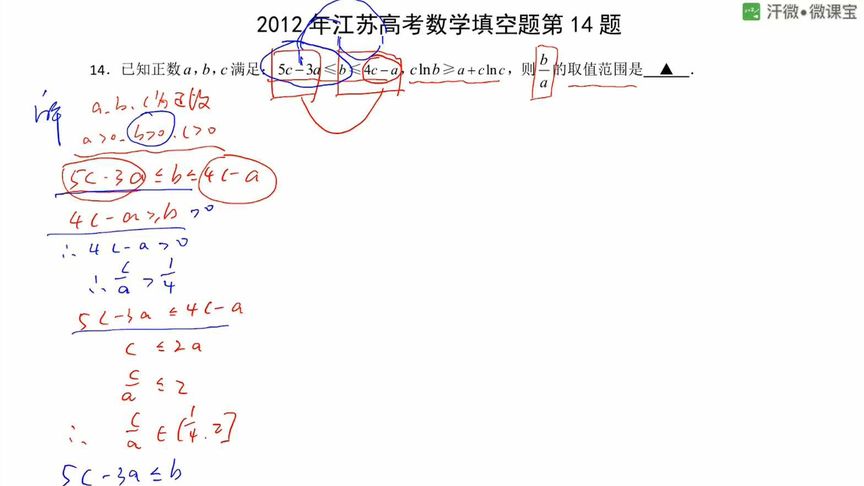 汗微·微课宝
2012年江苏高考数学填空题第14题
14. 已知正数a, b, c满足: 5c-3a≤b≤4c-a, clnb≥a+clnc, 则b/a的取值范围是 ▲ .
解 a.b.c为正数
a>0.b>0.c>0
5c-3a≤b≤4c-a
4c-a≥b>0
∴4c-a>0
∴c/a>1/4
5c-3a≤4c-a
c≤2a
c/a≤2
∴ c/a∈(1/4.2]
5c-3a≤b